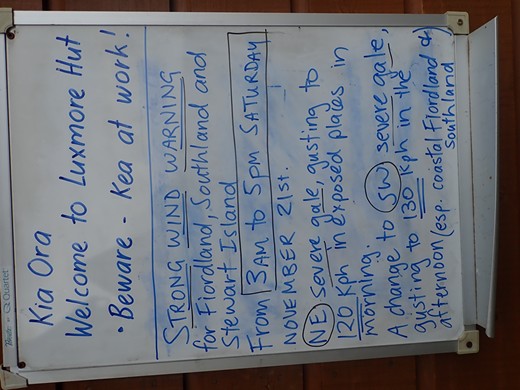 Kia Ora
Welcome to Luxmore Hut
• Beware - Kea at work!
STRONG WIND WARNING
for Fiordland, Southland and
Stewart Island
From 3AM to 5PM SATURDAY
NOVEMBER 21st.
NE severe gale, gusting to
120 Kph in exposed places in
morning.
A change to SW severe gale,
gusting to 130 kph in the
afternoon (esp. coastal Fiordland &
southland)
Quartet